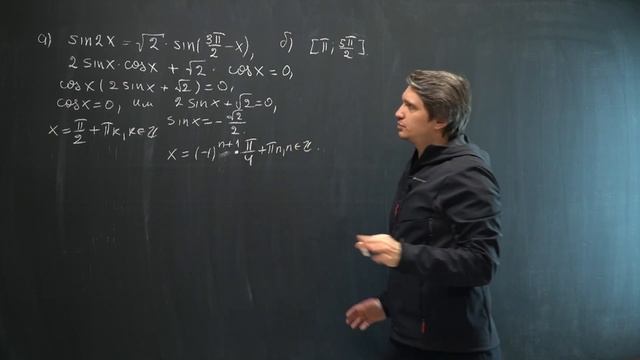 а) sin2x = √2 · sin(3π/2 - x), б) [π; 5π/2].
2 sinx · cosx + √2 · cosx = 0,
cosx (2 sinx + √2) = 0,
cosx = 0, или 2 sinx + √2 = 0,
sinx = - √2/2.
x = π/2 + πk, k ∈ ℤ
x = (-1)ⁿ⁺¹ · π/4 + πn, n ∈ ℤ.